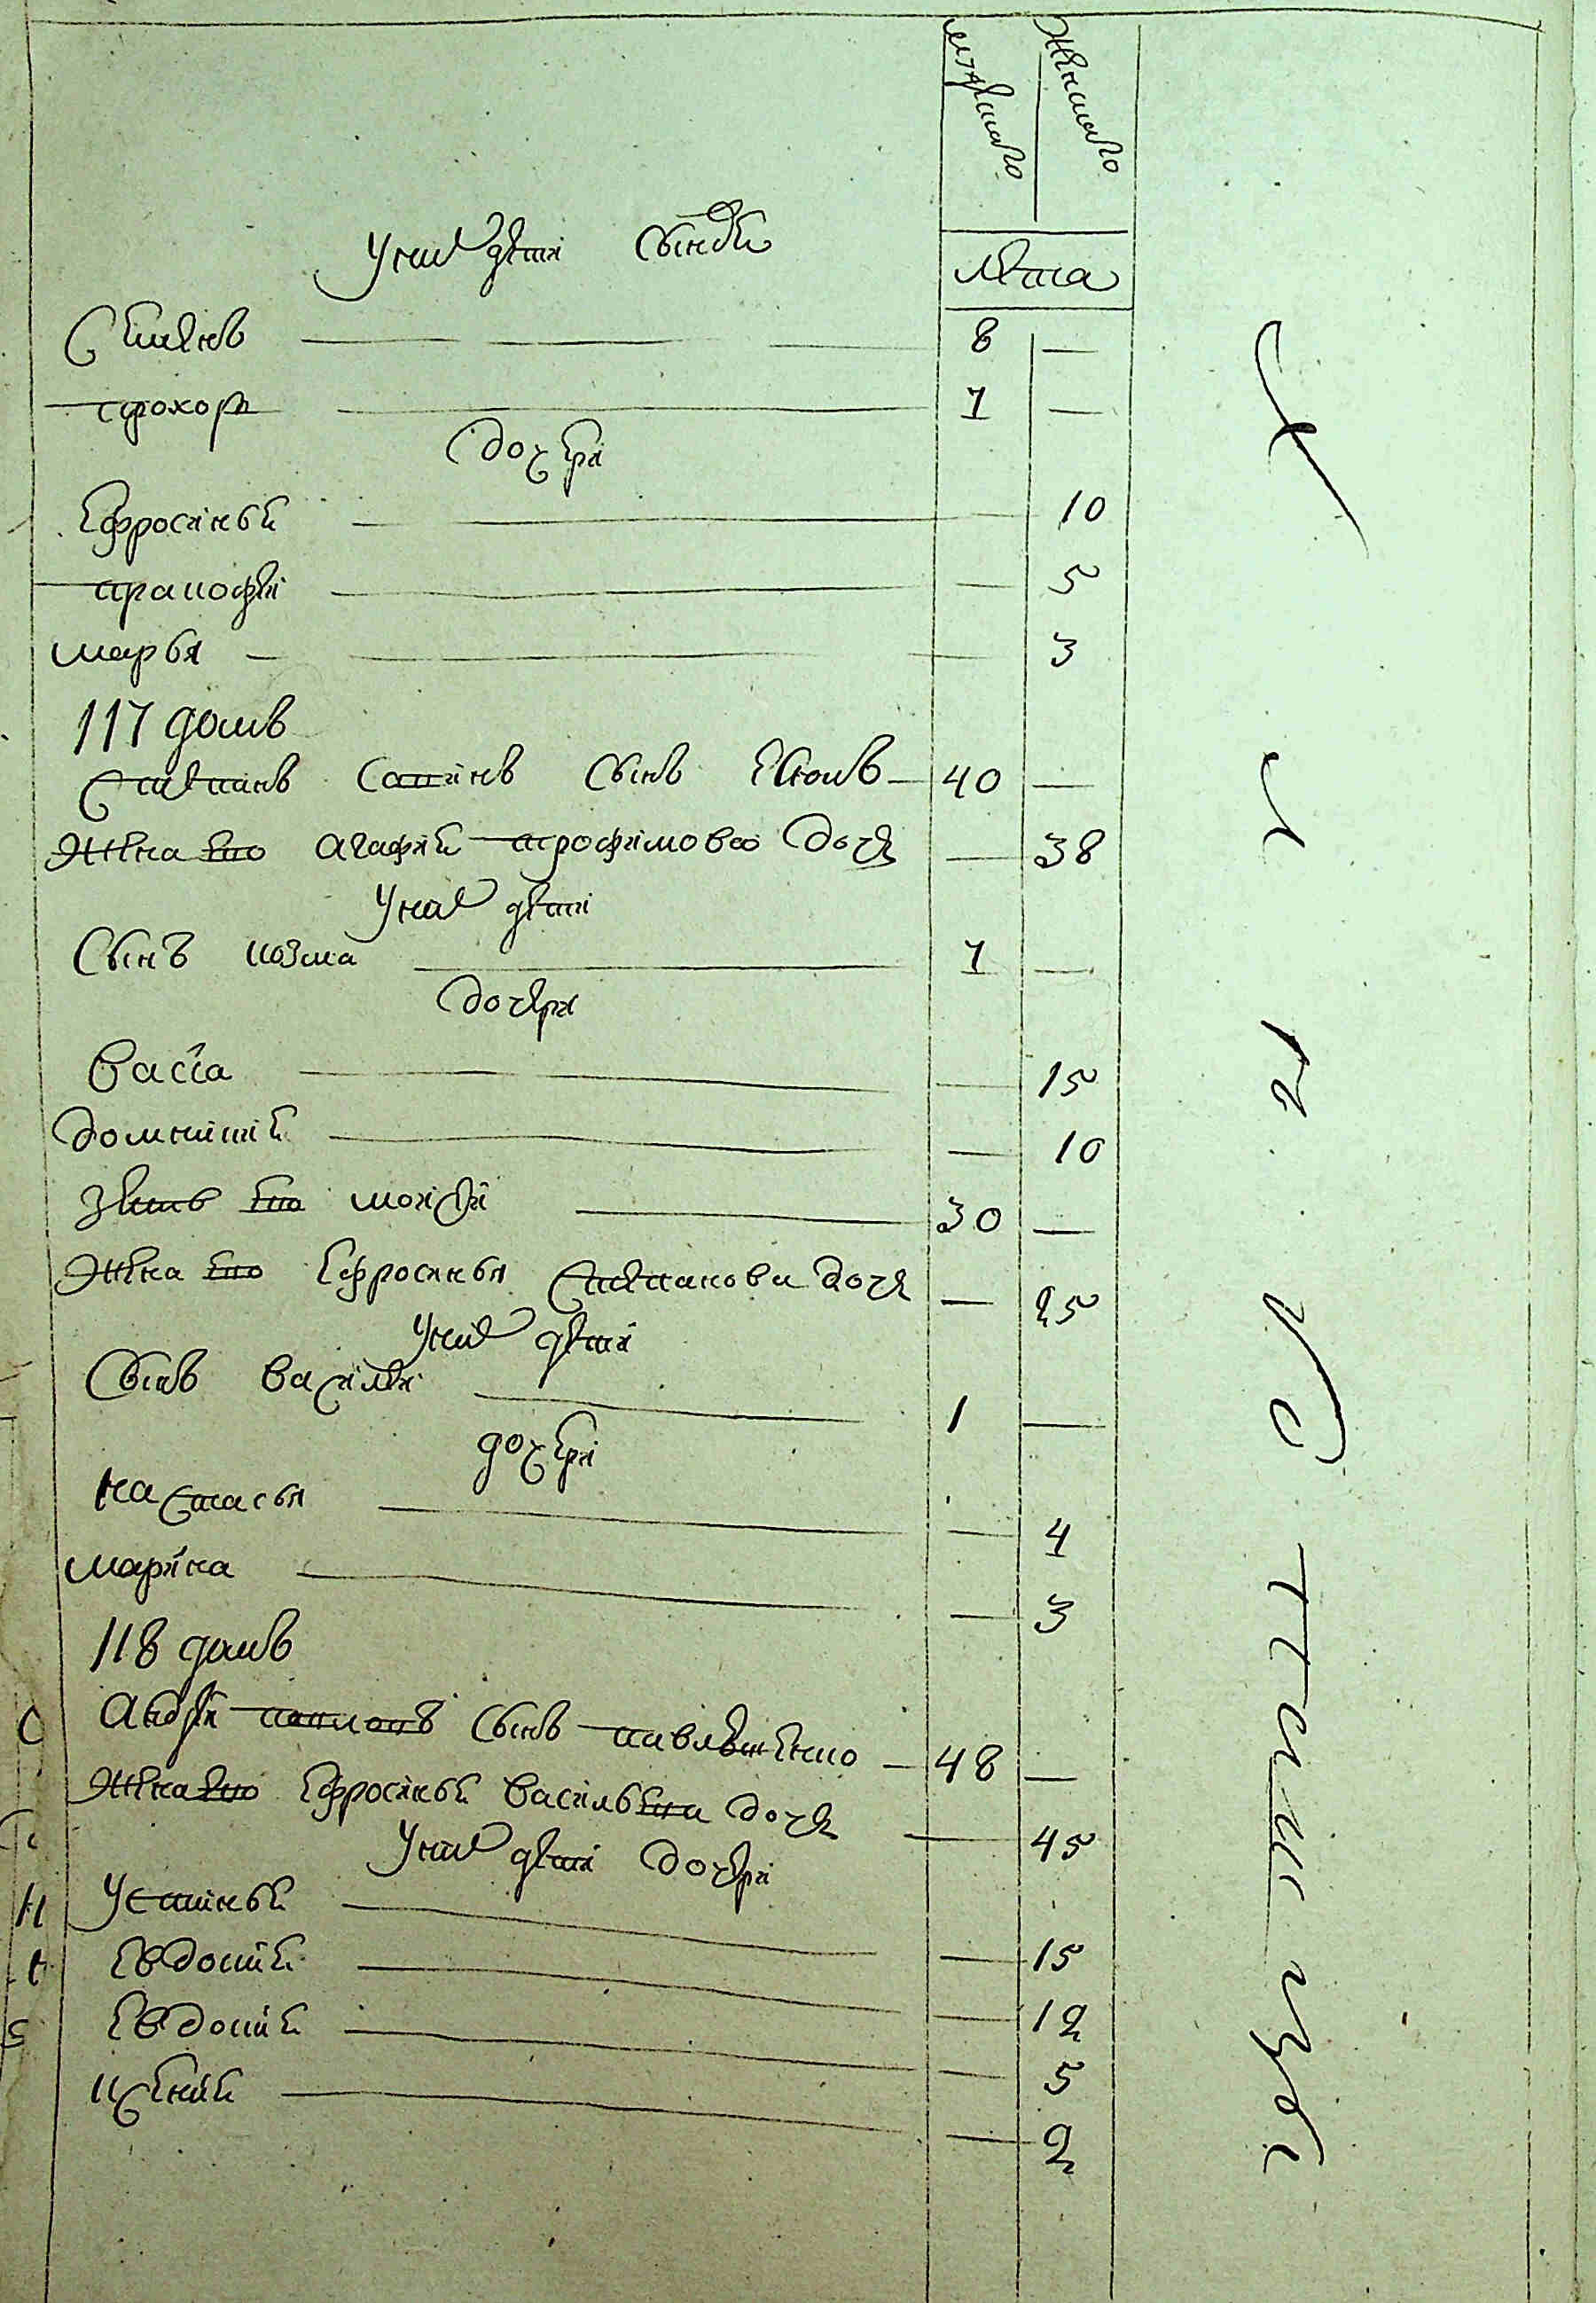 мужеска
женска
У них дѣти сыновя
лѣта
Семенъ — 8 —
прохоръ — 7 —
дочери
Ефросиния — 10
праскофія — 5
марья — 3
117 домъ
Степанъ сынъ — 40 —
жена ево агафия трофимова дочь — 38
У них дѣти
Сынъ козма — 7 —
дочери
васса — 15
домникия — 10
зять ево моисей — 30 —
жена ево ефросинья Степанова дочь — 25
У них дѣти
Сынъ василей — 1 —
дочери
настасья — 4
марина — 3
118 домъ
андрей сынъ павленко — 48 —
жена ево ефросиния васильева дочь — 45
У них дѣти дочери
Устиния — 15
Евдокия — 12
Евдокия — 5
ксения — 2